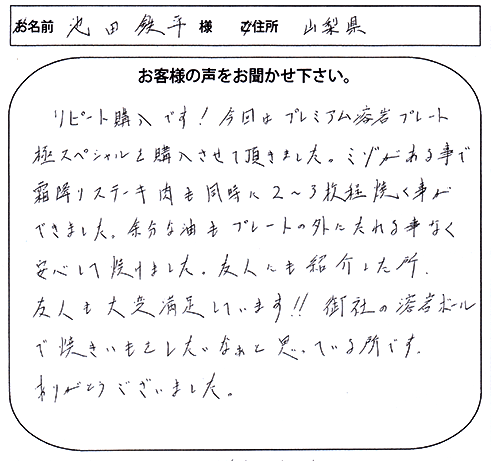 お名前 池田鉄平 様 ご住所 山梨県
お客様の声をお聞かせ下さい。
リピート購入です！今回はプレミアム溶岩プレート
極スペシャルを購入させて頂きました。ミゾがある事で
霜降りステーキ肉も同時に2〜3枚程焼く事が
できました。余分な油もプレートの外にたれる事なく
安心して焼けました。友人にも紹介した所、
友人も大変満足しています!! 御社の溶岩ボール
で焼きいもをしたいなぁと思っている所です。
ありがとうございました。